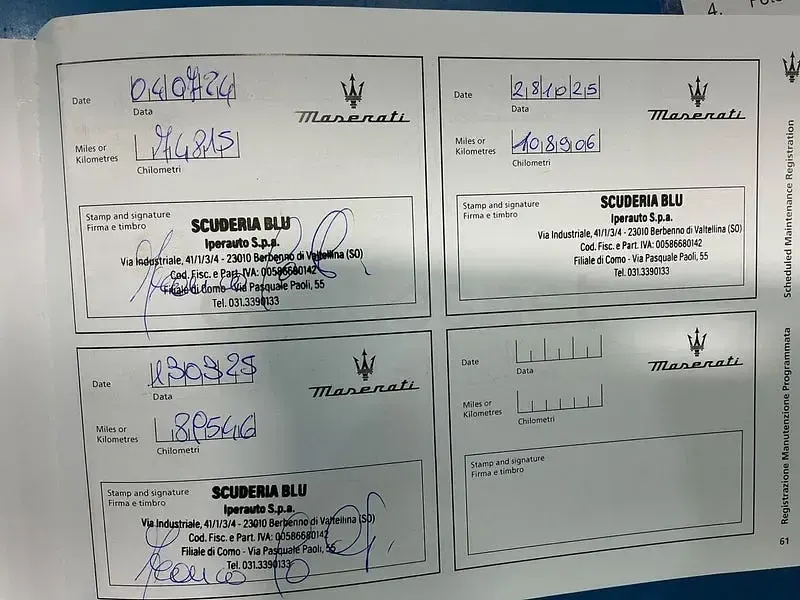 4.
Date
040724
Data
Maserati
Miles or
Kilometres
74815
Chilometri
Stamp and signature
Firma e timbro
SCUDERIA BLU
Iperauto S.p.a.
Via Industriale, 41/1/3/4 - 23010 Berbenno di Valtellina (SO)
Cod. Fisc. e Part. IVA: 00586680142
Filiale di Como - Via Pasquale Paoli, 55
Tel. 031.3390133
Date
281025
Data
Maserati
Miles or
Kilometres
108906
Chilometri
Stamp and signature
Firma e timbro
SCUDERIA BLU
Iperauto S.p.a.
Via Industriale, 41/1/3/4 - 23010 Berbenno di Valtellina (SO)
Cod. Fisc. e Part. IVA: 00586680142
Filiale di Como - Via Pasquale Paoli, 55
Tel. 031.3390133
Date
130325
Data
Maserati
Miles or
Kilometres
89546
Chilometri
Stamp and signature
Firma e timbro
SCUDERIA BLU
Iperauto S.p.a.
Via Industriale, 41/1/3/4 - 23010 Berbenno di Valtellina (SO)
Cod. Fisc. e Part. IVA: 00586680142
Filiale di Como - Via Pasquale Paoli, 55
Tel. 031.3390133
Date
Data
Maserati
Miles or
Kilometres
Chilometri
Stamp and signature
Firma e timbro
Scheduled Maintenance Registration
Registrazione Manutenzione Programmata
61